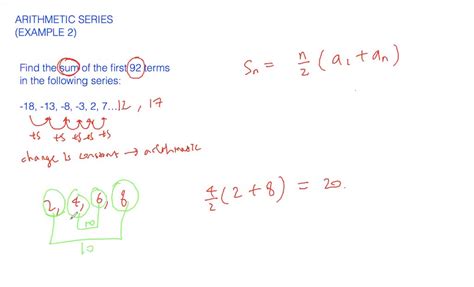 ARITHMETIC SERIES
(EXAMPLE 2)
Find the sum of the first 92 terms
in the following series:
-18, -13, -8, -3, 2, 7...12, 17
+5 +5 +5 +5 +5
change is constant → arithmetic
Sn = n/2 (a1 + an)
2, 4, 6, 8
10
10
4/2 (2 + 8) = 20.